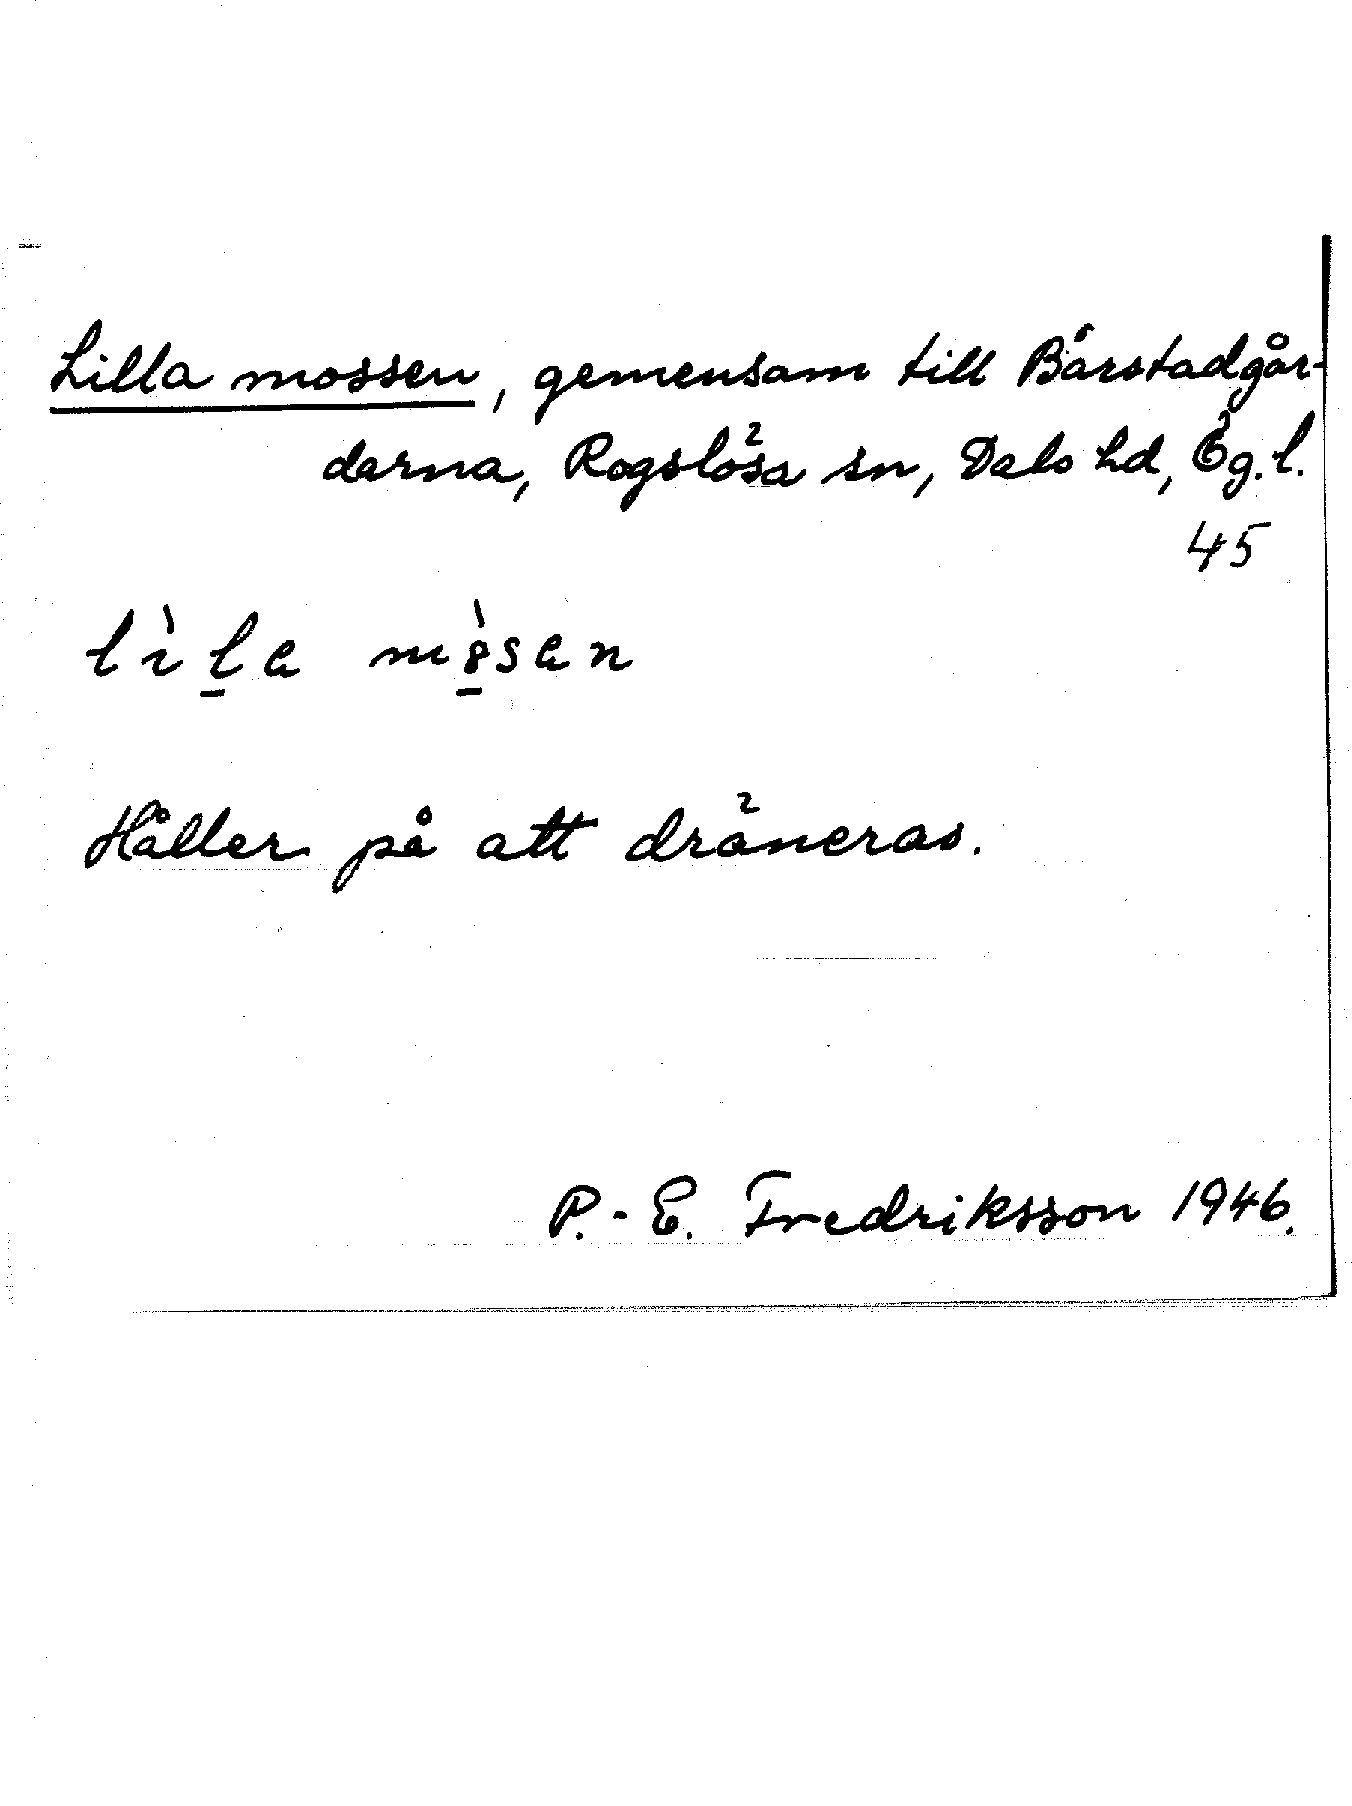 Lilla mossen, gemensam till Bårstadgår-
darna, Rogslösa sn, Dals hd, Ög. l.
45
lìla mòsen
Håller på att dräneras.
P.-E. Fredriksson 1946.